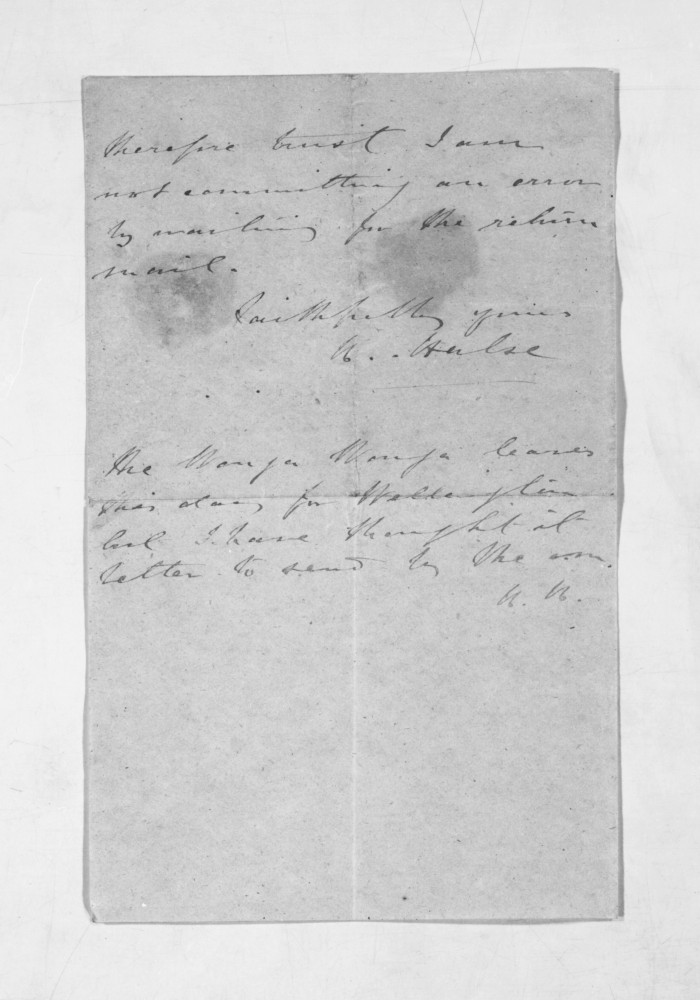 therefore trust I am
not committing an error
by waiting for the return
mail.
Faithfully yours
Hulse
The Wonga Wonga leaves
this day for Wellington
but I have thought it
better to send by the